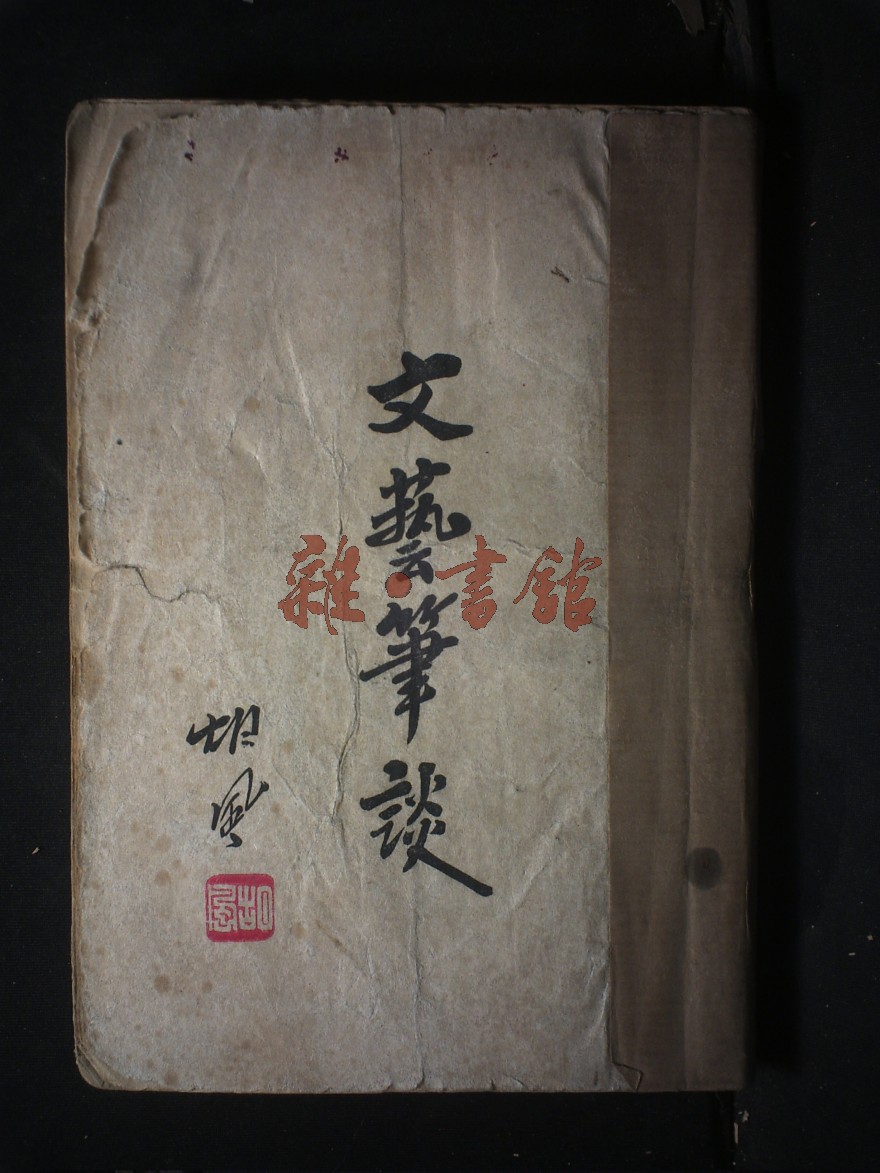 文藝筆談
胡風
胡風
雜·書館